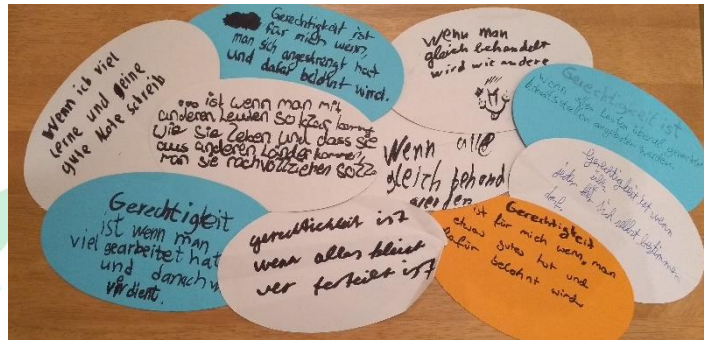 Wenn ich viel
lerne und eine
gute Note schreib
Gerechtigkeit ist
für mich wenn,
man sich angestrengt hat
und dafür belohnt wird.
Wenn man
gleich behandelt
wird wie andere
Gerechtigkeit ist
wenn allen Leuten überall
angeboten werden
ist wenn man mit
anderen Leuten so klar kommt
wie sie Leben und dass sie
aus anderen Länder kommen,
man sie nachvollziehen sollte
Wenn alle
gleich behand
werden
gerechtigkeit ist wenn
jeder für sich selbst bestimmen
darf.
Gerechtigkeit
ist wenn man
viel gearbeitet hat
und danach
verdient.
gerechtichkeit ist
wenn alles bleich
ver teeilt ist
Gerechtigkeit
ist für mich wenn, man
etwas gutes tut und
dafür belohnt wird.